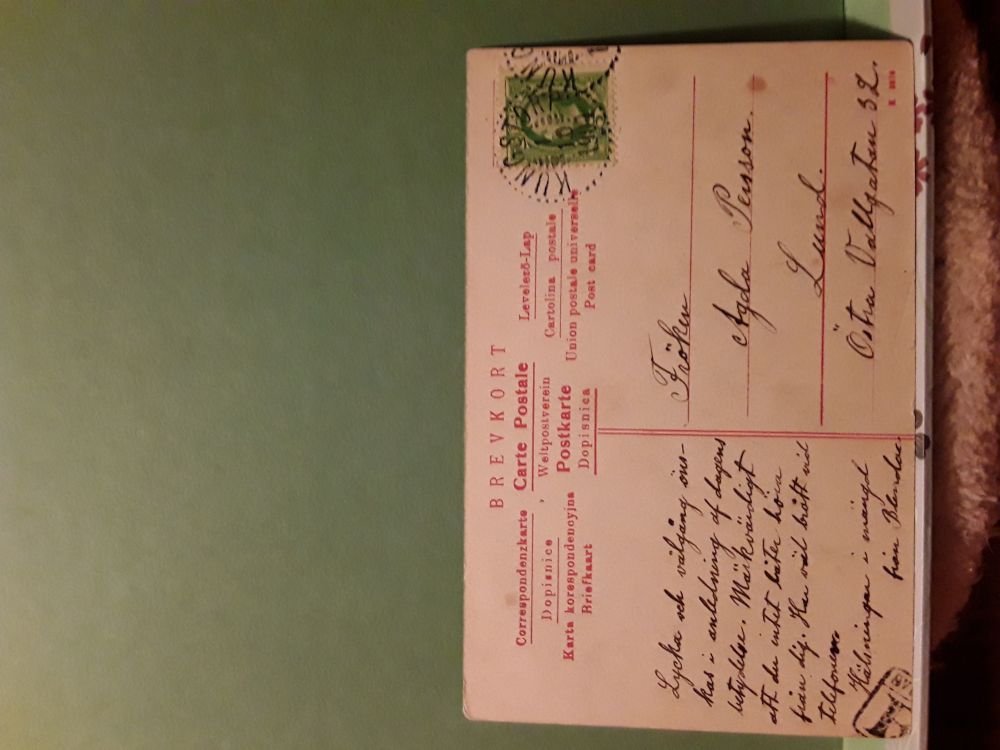 BREVKORT
Correspondenzkarte Carte Postale Levelező-Lap
Dopisnice, Weltpostverein Cartolina postale
Karta korespondencyjna Postkarte Union postale universelle
Briefkaart Dopisnica Post card
Lycka och välgång öns-
kas i anledning af dagens
betydelse. Märkvärdigt
att du intet låter höra
från dig. Har väl brått vid
telefonen
Hälsningar i mängd
från Blenda
Fröken
Agda Persson.
Lund.
Östra Vallgatan 32.